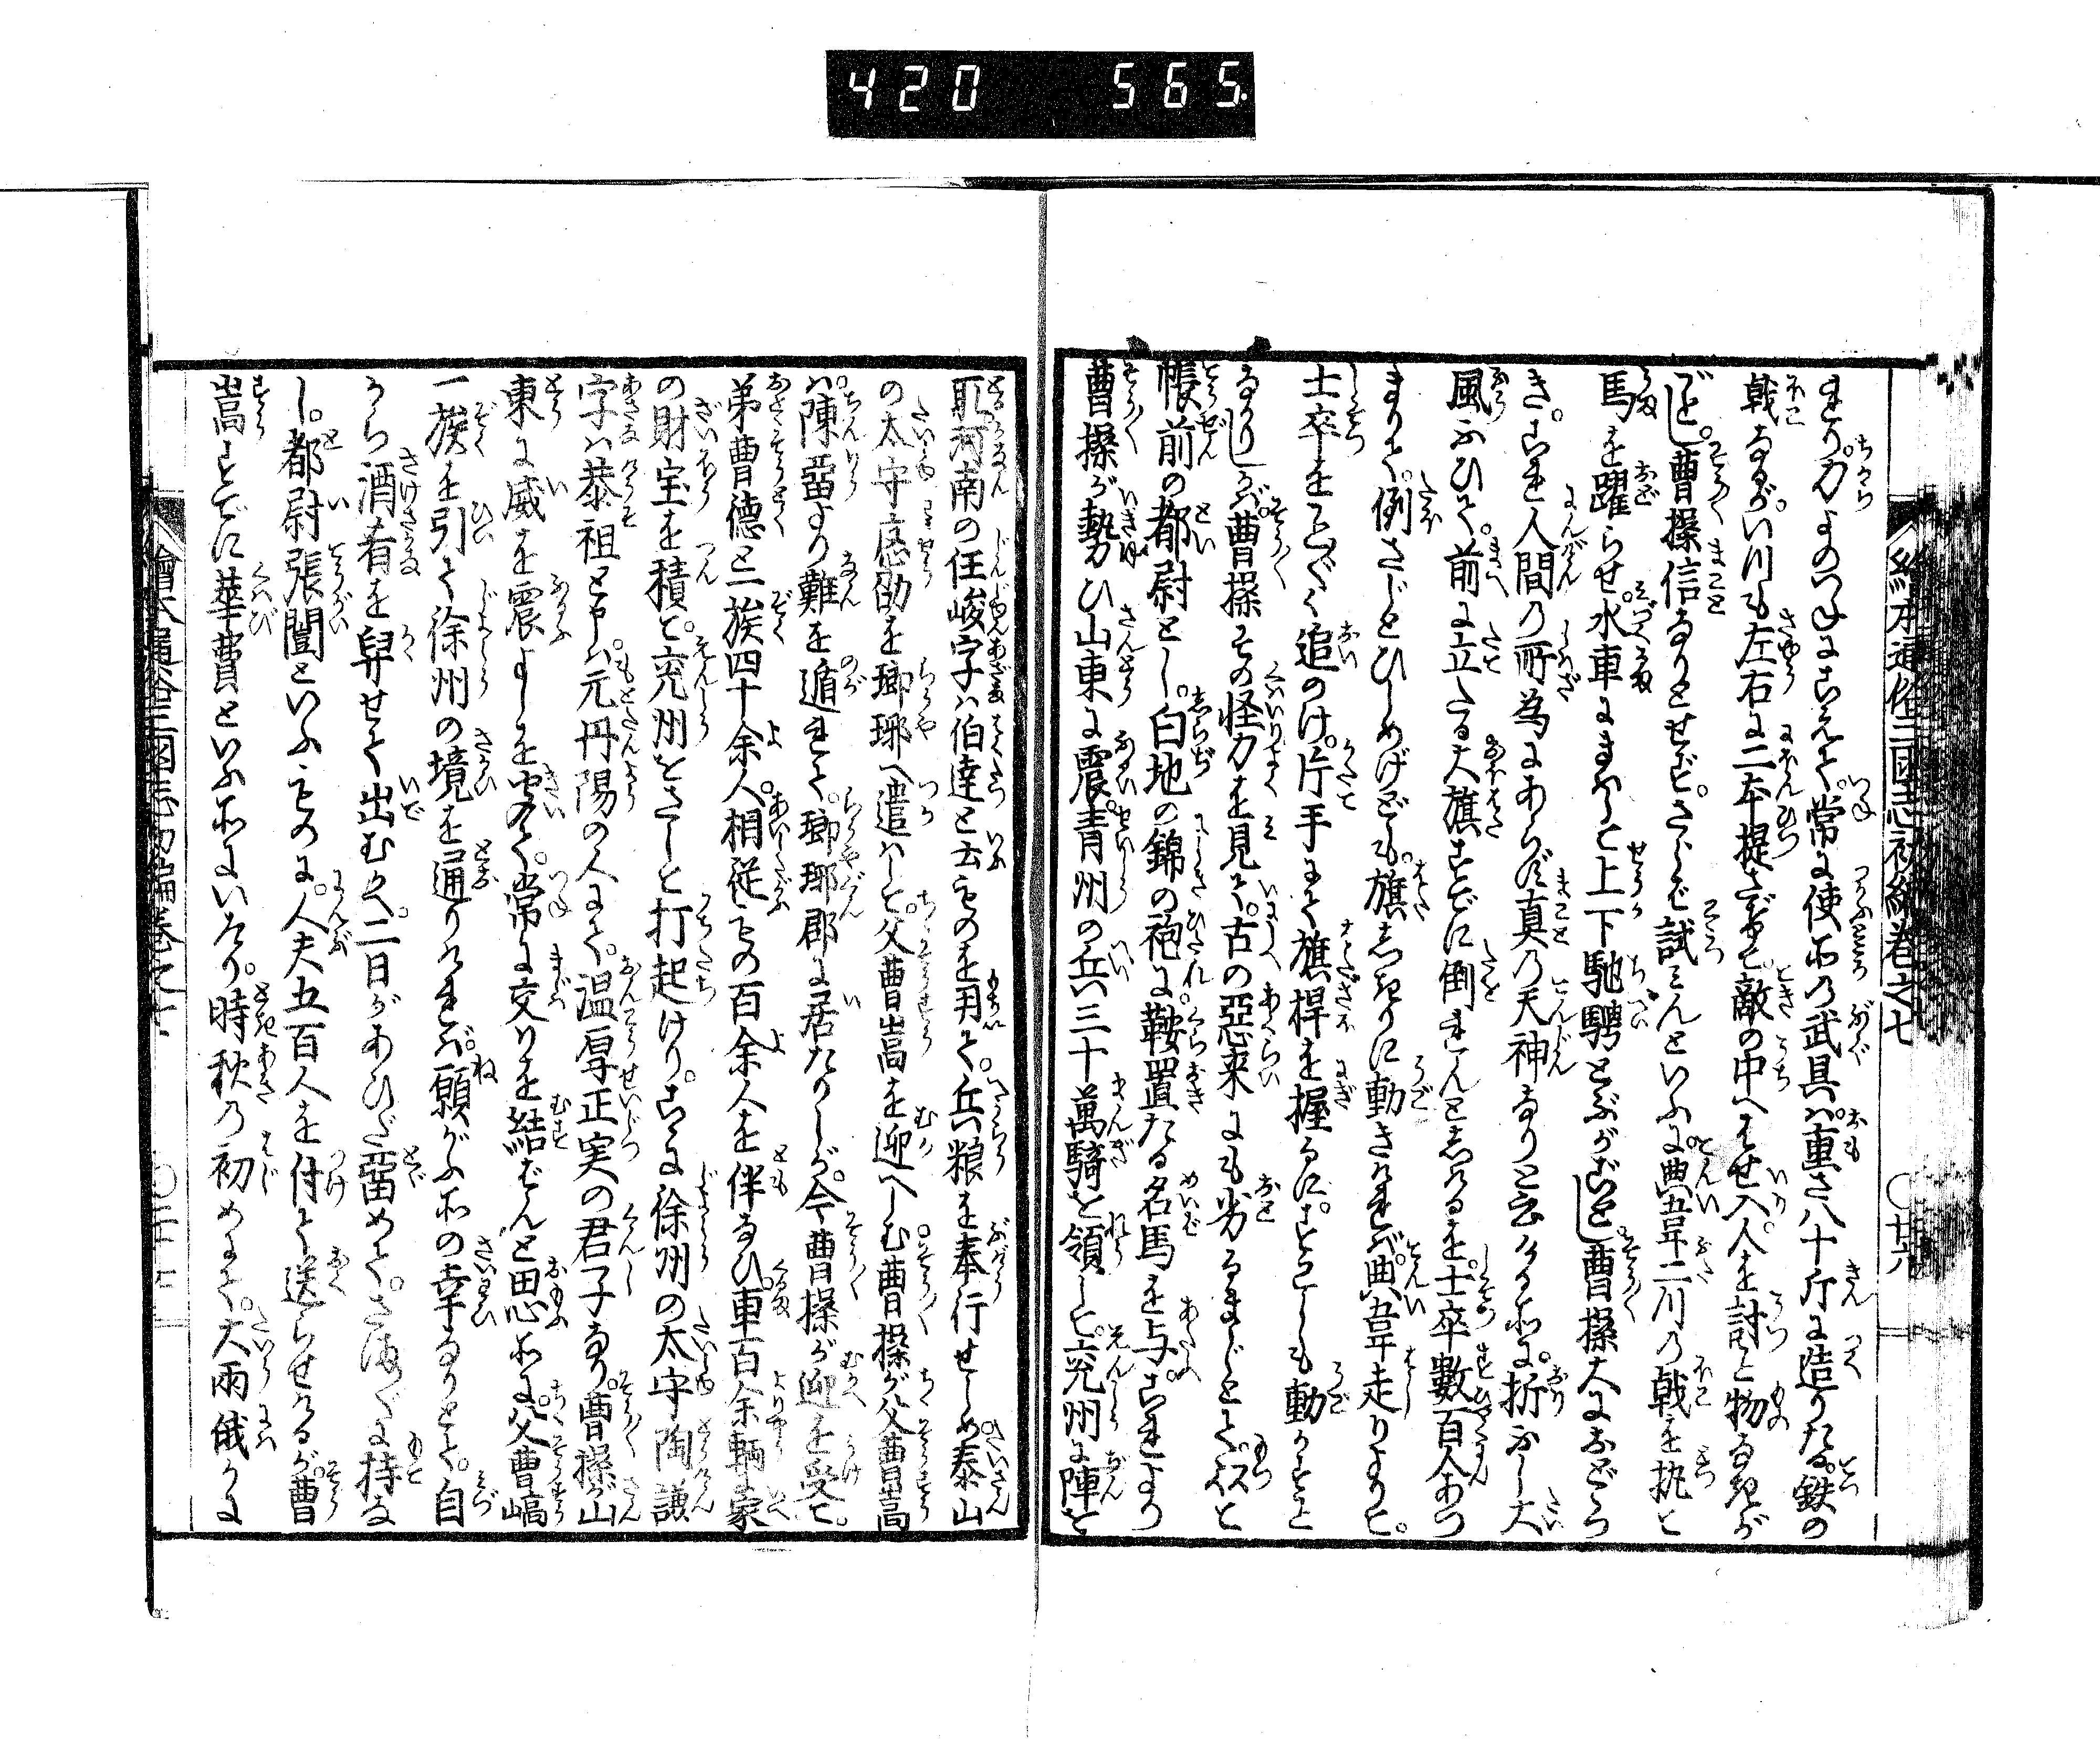 420 565
繪本通俗三國志初編巻之七 〇廿六
まり。力よのつねにこえて。常に使ふ所の武具は。重さ八十斤に造りたる。鉄の
戟なるが。いつも左右に二本提さげて。敵の中へはせ入。人を討こと物なきが
ごとし。曹操信なりとせず。さらば試みんといふに。典韋二つの戟を執て
馬を躍らせ。水車にまはして上下馳騁とぶがごとし。曹操大におどろ
き。これ人間の所為にあらず。真の天神なりと云ける所に。折ふし大
風ふひて。前に立たる大旗すでに倒れんとしけるを。士卒数百人あつ
まりて。倒さじとひしめけども。旗しきりに動きければ。典韋走りよりて。
士卒をことごとく追のけ。片手にて旗桿を握るに。すこしも動かすこと
なかりしかば。曹操その怪力を見て。古の悪来にも劣るまじとて。
帳前の都尉とし。白地の錦の袍に。鞍置たる名馬を与ふ。これより
曹操が勢ひ山東に震ひ。青州の兵三十萬騎を領して。兗州に陣を
取。河南の任峻字は伯達と云ものを用て。兵粮を奉行せしめ。泰山
の太守応劭を瑯琊へ遣はして。父曹嵩を迎へしむ。曹操が父曹嵩
は。陳留より難を遁れて。瑯琊郡に居たりしが。今曹操が迎を受て。
弟曹徳と一族四十余人。相従ふもの百余人を伴なひ。車百余輌に家
の財宝を積て。兗州をさして打起けり。こゝに徐州の太守陶謙
字は恭祖と申は。元丹陽の人にて。温厚正実の君子なり。曹操が山
東に威を震ふよしを聞て。常に交りを結ばんと思ふ所に。父曹嵩
一族を引て徐州の境を通りければ。願がふ所の幸なりとて。自
から酒肴を舁せて出むかへ。二日があひだ留めて。さまざまに持な
し。都尉張闓といふものに。人夫五百人を付て送らせけるが。曹
嵩すでに華費といふ所にいたり。時秋の初めにて。大雨俄かに
繪本通俗三國志初編巻之七